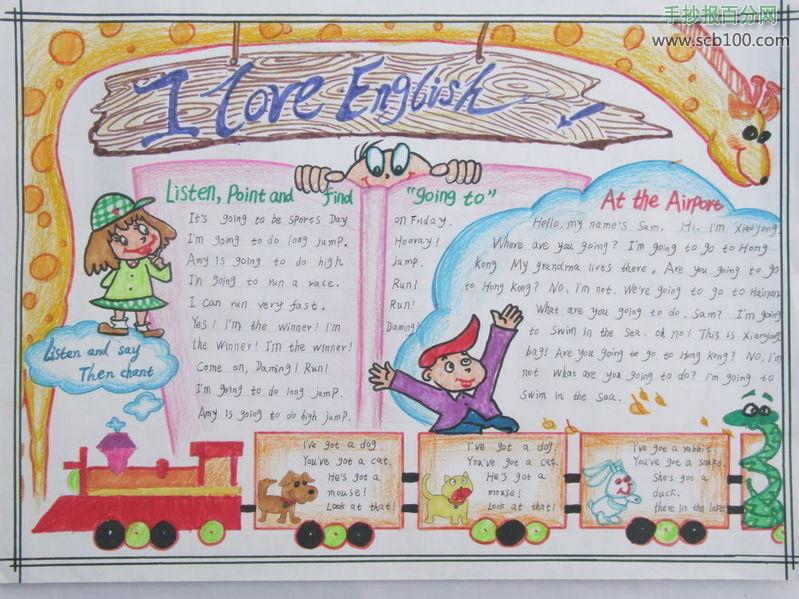 手抄报百分网
www.scb100.com
I Love English
Listen, Point and find "going to"
It's going to be sports Day
I'm going to do long jump.
Amy is going to do high
I'm going to run a race.
I can run very fast.
Yes! I'm the winner! I'm
the winner! I'm the winner!
Come on, Daming! Run!
I'm going to do long jump.
Amy is going to do high jump.
on Friday.
Hooray!
jump.
Run!
Run!
Daming!
At the Airport
Hello, my name's Sam. Hi, I'm Xiaoyong.
Where are you going? I'm going to go to Hong
Kong. My grandma lives there. Are you going to go
to Hong Kong? No, I'm not. We're going to go to Hainan.
What are you going to do, Sam? I'm going
to swim in the sea. oh no! This is Xiaoyong
bag! Are you going to go to Hong Kong? No, I'm
not. What are you going to do? I'm going to
swim in the sea.
Listen and say
Then chant
I've got a dog.
You've got a cat.
He's got a
mouse!
Look at that!
I've got a dog.
You've got a cat.
He's got a
mouse!
Look at that!
I've got a rabbit.
You've got a snake.
She's got a
duck.
there in the lake